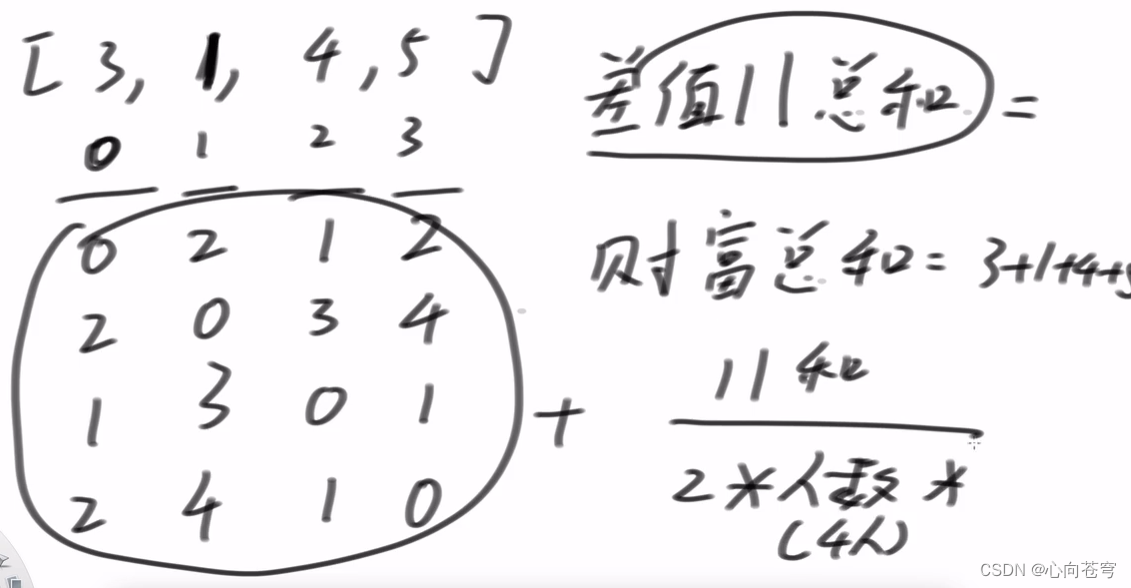 [3, 1, 4, 5]
0 1 2 3
0 2 1 2
2 0 3 4
1 3 0 1
2 4 1 0
差值||总和 =
财富总和= 3+1+4+5
+
||和
2*人数*
(4人)
CSDN @心向苍穹